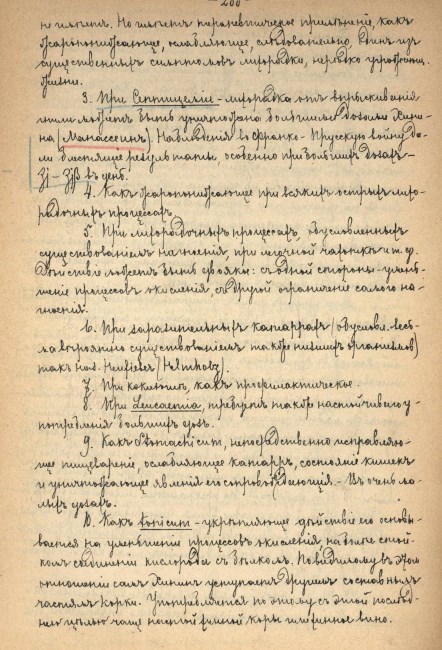 - 200 -
не имѣетъ. Но имѣетъ терапевтическое примѣненіе, какъ
жаропонижающее, ослабляющее, слѣдовательно, одинъ изъ
существенныхъ симптомовъ лихорадки, нерѣдко угрожающ.
жизни.
3. При Септицеміи - лихорадка отъ впрыскиванія
гнили можетъ быть уничтожена большими дозами хини-
на (Манассеинъ). Наблюденія во Франко-Прусскую войну да-
ли блестящіе результаты, особенно при большихъ дозахъ -
ʒj - ʒjβ въ день.
4. Какъ жаропонижающее при всякихъ острыхъ лихо-
радочныхъ процессахъ.
5. При лихорадочныхъ процессахъ, обусловленныхъ
существованіемъ нагноенія, при легочной чахоткѣ и т. д.
Дѣйствіе можетъ быть двоякое: съ одной стороны - умень-
шеніе процессовъ окисленія, съ другой ограниченіе самого на-
гноенія.
6. При заразительныхъ катаррахъ (обусловл. весь-
ма вѣроятно существованіемъ также низшихъ организмовъ)
такъ наз. Heufieber (Helmholz).
7. При коклюшѣ, какъ профилактическое.
8. При Leucaemia, требуетъ также настойчиваго у-
потребленія большихъ дозъ.
9. Какъ Stomachicum, непосредственно исправляю-
щее пищевареніе, ослабляющее катарръ, состояніе кишекъ
и уничтожающее явленія его сопровождающія. - Въ очень ма-
лыхъ дозахъ.
10. Какъ tonicum - укрѣпляющее дѣйствіе его основы-
вается на уменьшеніи процессовъ окисленія на болѣе стой-
комъ соединеніи кислорода съ бѣлкомъ. Повидимому въ этомъ
отношеніи самъ Хининъ уступаетъ другимъ составнымъ
частямъ корки. Употребляется поэтому съ этой послѣд-
нею цѣлью чаще настой хинной коры или хинное вино.